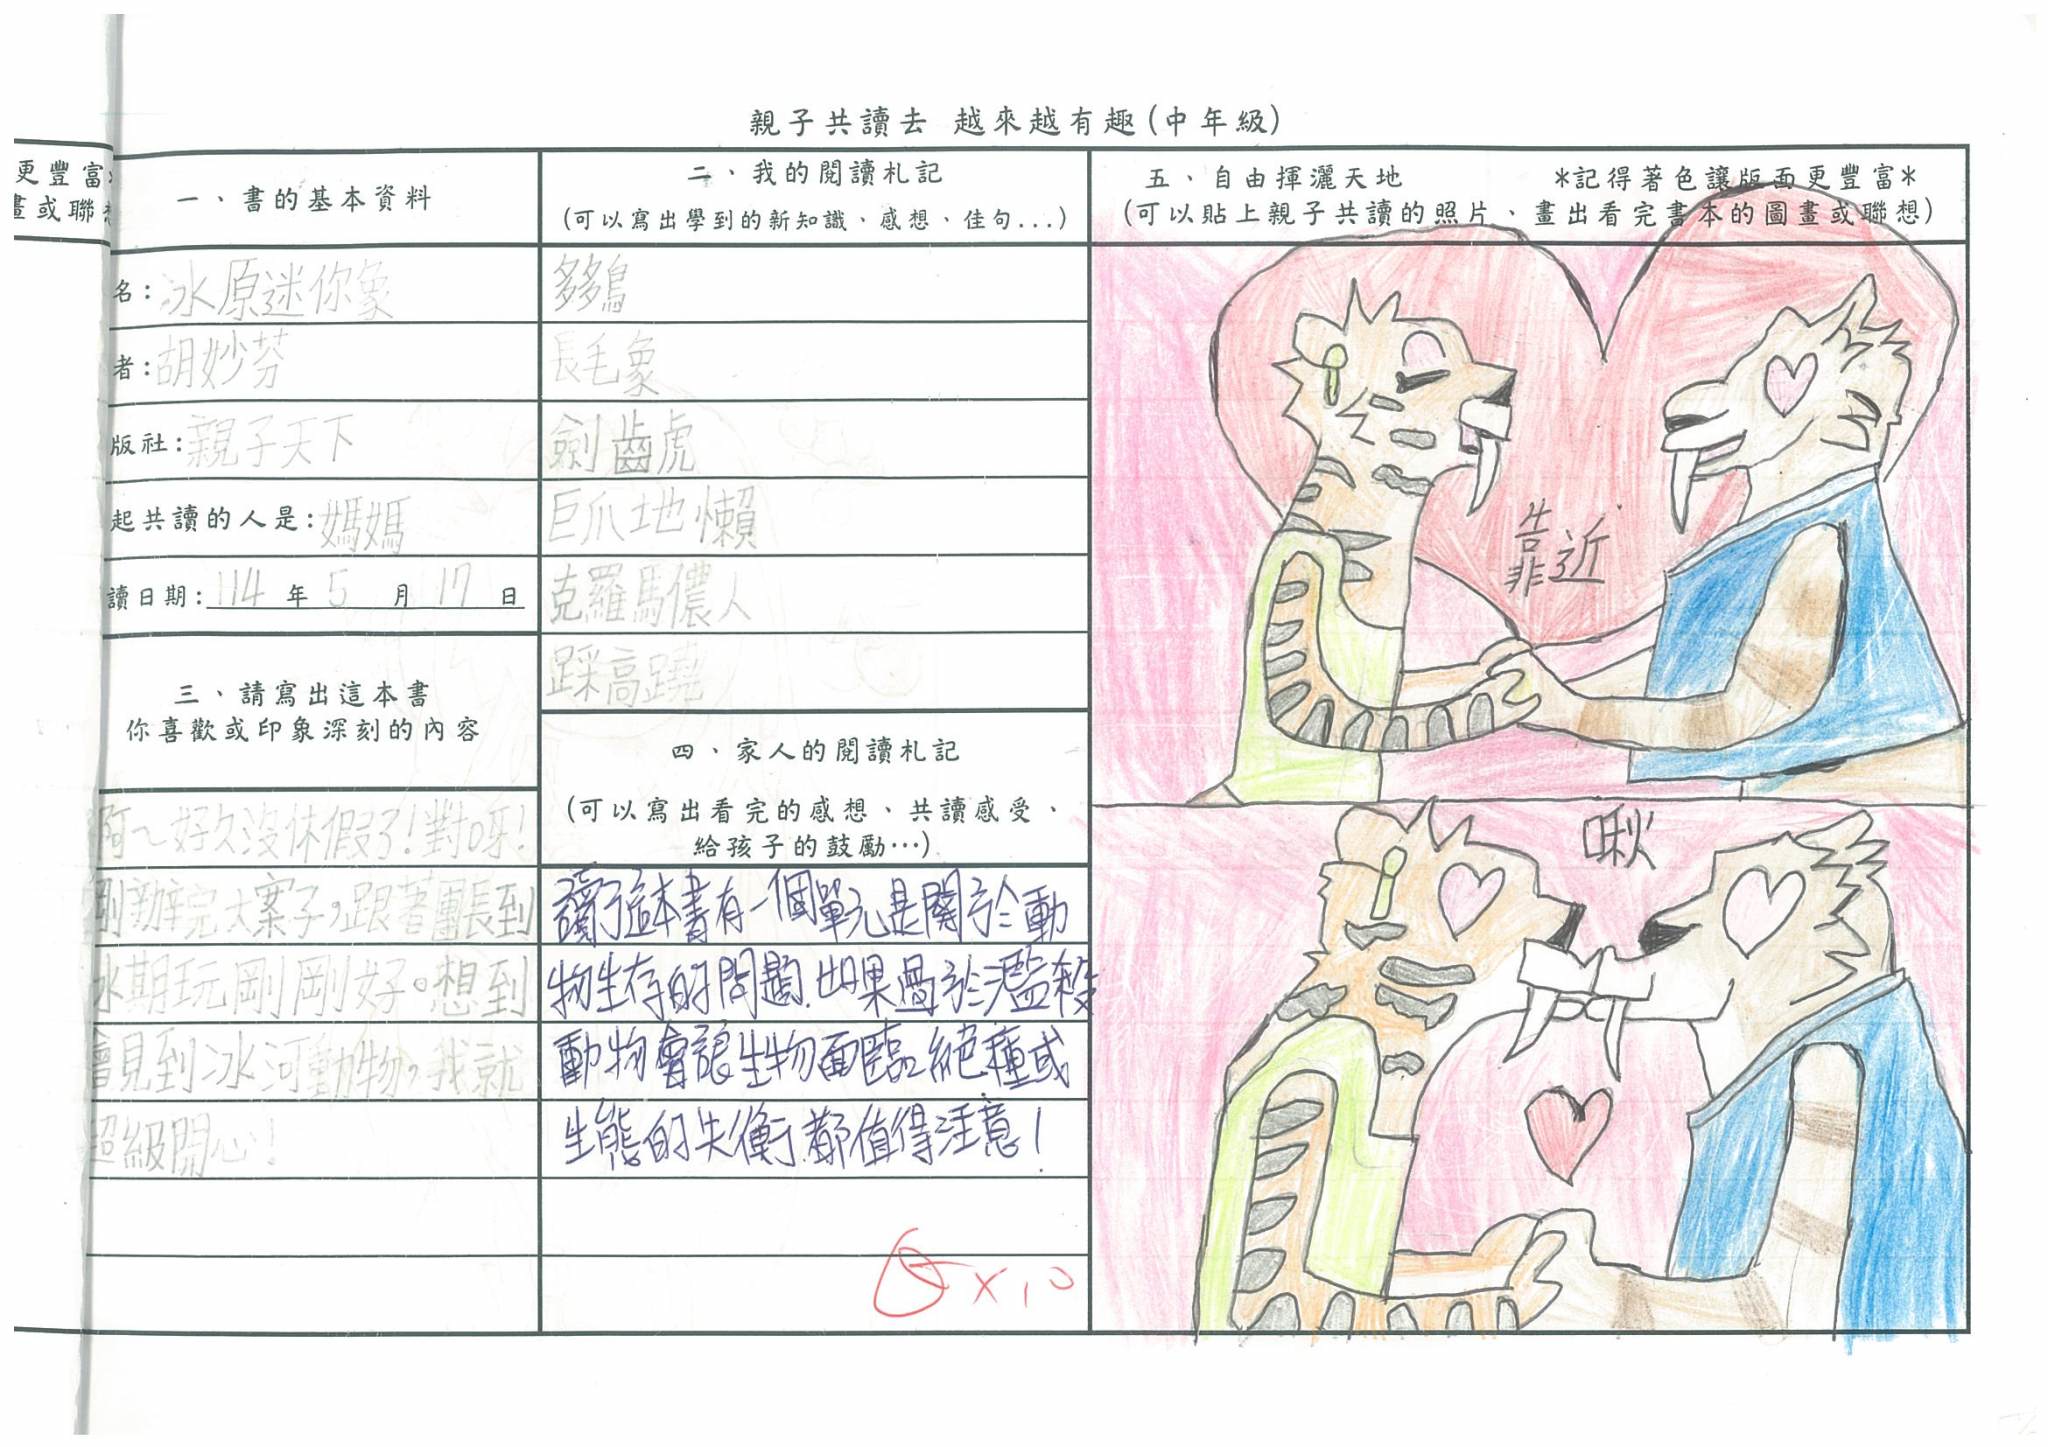 親子共讀去 越來越有趣(中年級)
更豐富*
畫或聯想
一、書的基本資料
名:冰原迷你象
者:胡妙芬
版社:親子天下
起共讀的人是:媽媽
讀日期:114年5月17日
三、請寫出這本書
你喜歡或印象深刻的內容
啊~好久沒休假了!對呀!
剛辦完大案子,跟著團長到
冰期玩剛剛好。想到
會見到冰河動物,我就
超級開心!
二、我的閱讀札記
(可以寫出學到的新知識、感想、佳句...)
多多鳥
長毛象
劍齒虎
巨爪地懶
克羅馬儂人
踩高蹺
四、家人的閱讀札記
(可以寫出看完的感想、共讀感受、
給孩子的鼓勵…)
讀了這本書有一個單元是關於動
物生存的問題.如果過於濫殺
動物會讓生物面臨絕種或
生態的失衡.都值得注意!
x10
五、自由揮灑天地 *記得著色讓版面更豐富*
(可以貼上親子共讀的照片、畫出看完書本的圖畫或聯想)
靠近
啾